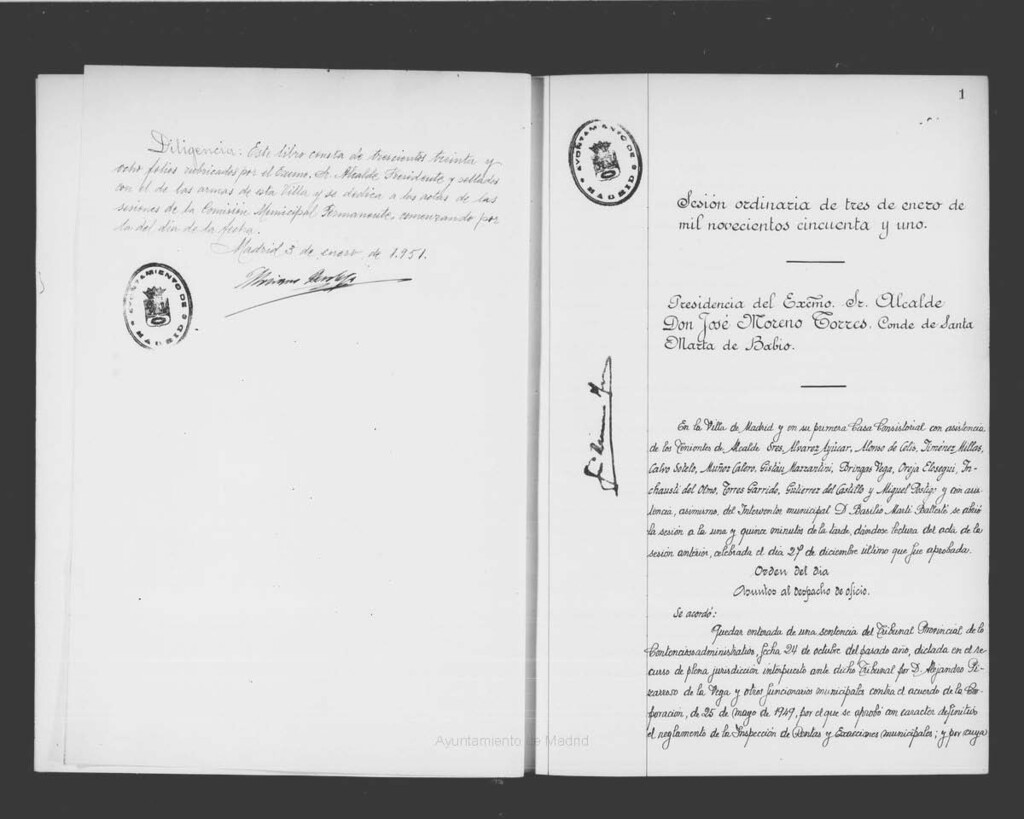 Diligencia: Este libro consta de trescientos treinta y
ocho folios rubricados por el Excmo. Sr. Alcalde Presidente y sellados
con el de las armas de esta Villa y se dedica a las actas de las
sesiones de la Comisión Municipal Permanente comenzando por
la del día de la fecha.
Madrid 3 de enero de 1.951.
AYUNTAMIENTO DE MADRID
1
AYUNTAMIENTO DE MADRID
Sesión ordinaria de tres de enero de
mil novecientos cincuenta y uno.
Presidencia del Excmo. Sr. Alcalde
Don José Moreno Torres. Conde de Santa
Marta de Babio.
En la Villa de Madrid y en su primera Casa Consistorial con asistencia
de los Tenientes de Alcalde Sres. Alvarez Ayúcar, Alonso de Celis, Jiménez Millas,
Calvo Sotelo, Muñoz Calero, Gistáu Mazzantini, Bringas Vega, Oreja Elosegui, In-
chausti del Olmo, Torres Garrido, Gutierrez del Castillo y Miguel Postigo y con asis-
tencia, asimismo, del Interventor municipal D. Basilio Martí Ballesté se abrió
la sesión a la una y quince minutos de la tarde, dándose lectura del acta de la
sesión anterior, celebrada el día 27 de diciembre último que fue aprobada.
Orden del día
Asuntos al despacho de oficio.
Se acordó:
Quedar enterada de una sentencia del Tribunal Provincial de lo
Contenciosoadministrativo, fecha 24 de octubre del pasado año, dictada en el re-
curso de plena jurisdicción interpuesto ante dicho Tribunal por D. Alejandro Pi-
zarroso de la Vega y otros funcionarios municipales contra el acuerdo de la Cor-
poración, de 25 de mayo de 1949, por el que se aprobó con caracter definitivo
el reglamento de la Inspección de Rentas y Exacciones municipales; y por cuya
Ayuntamiento de Madrid